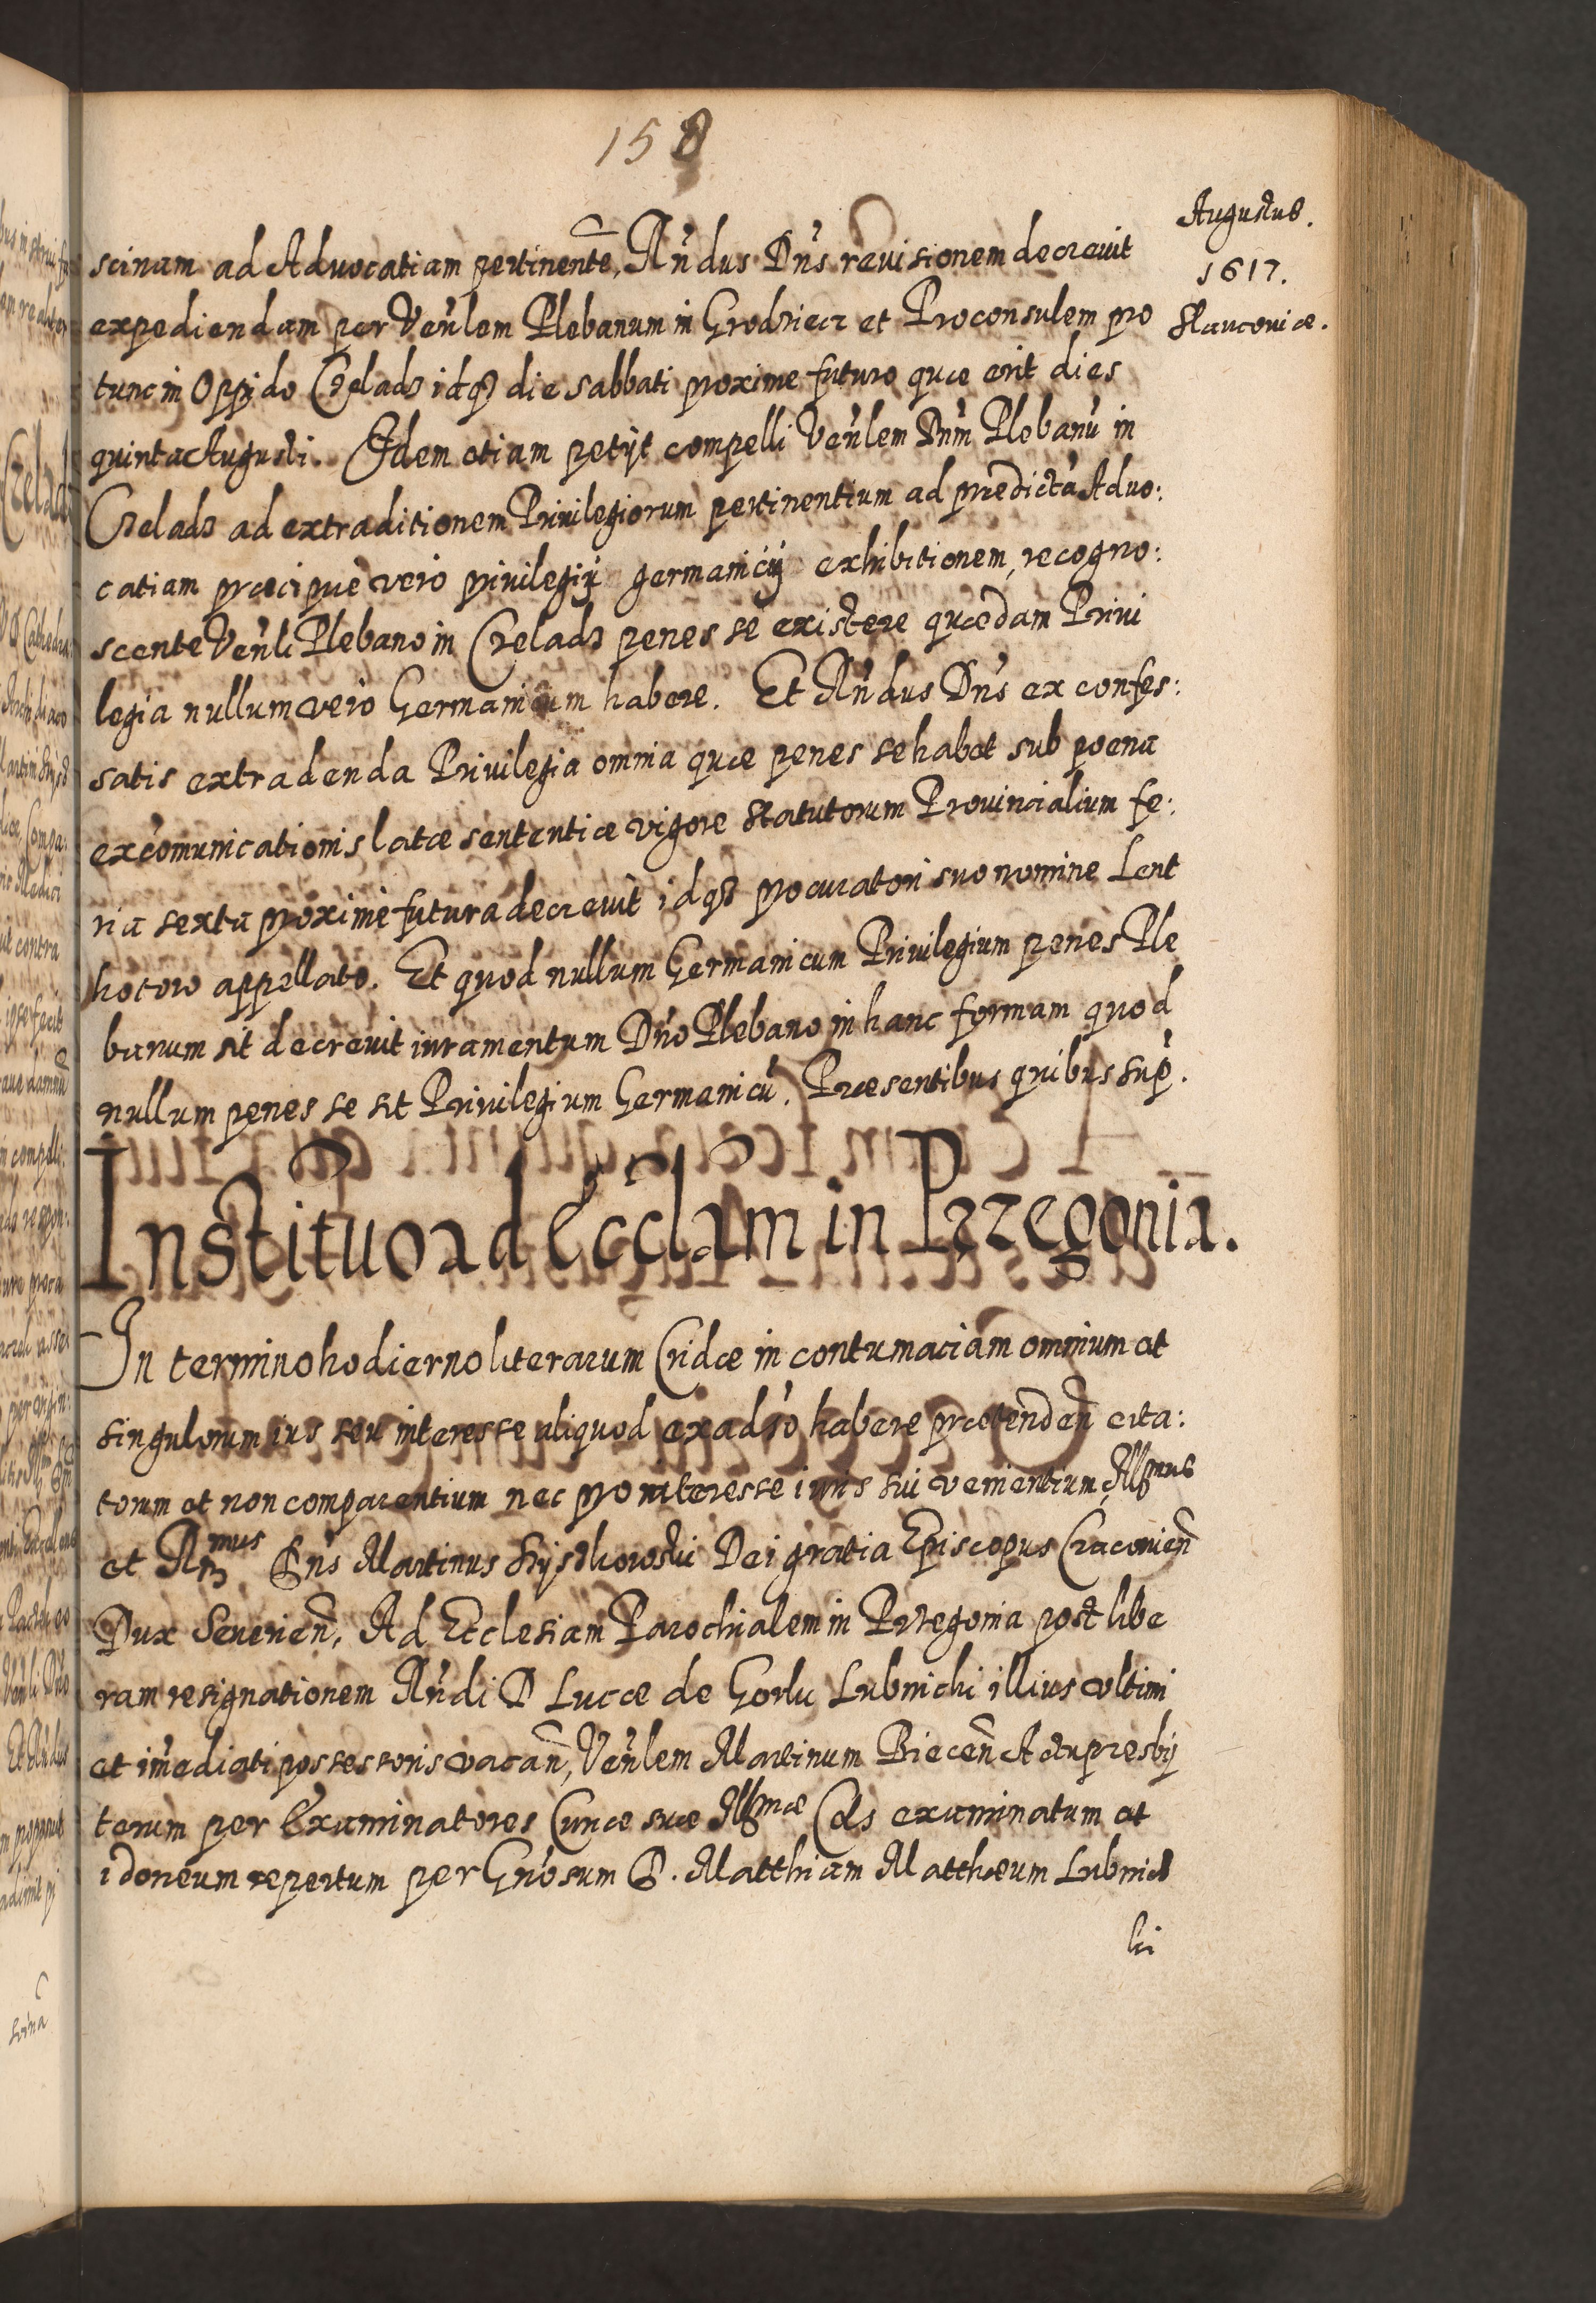 158
Augustus.
1617.
Slauconiæ.
scinam ad Aduocatiam pertinentē, Rńdus Dńs reuisionem decreuit
expediendam per Veńlem Plebanum in Grodziecz et Proconsulem pro
tunc in Oppido Czeladz idq3 die sabbati proxime futuro quæ erit dies
quinta Augusti. Idem etiam petijt compelli Veńlem Dńm Plebanū in
Czeladz ad extraditionem Priuilegiorum pertinentium ad prædictā Aduo:
catiam præcipue vero priuilegij germanicij exhibitionem, recogno:
scente Veńli Plebano in Czeladz penes se existere quædam Priui
legia nullum vero Germanicum habere. Et Rńdus Dńs ex confes:
satis extradenda Priuilegia omnia quæ penes se habet sub poena
excōmunicationis latæ sententiæ vigore statutorum Prouincialium fe:
ria sexta proxime futura decreuit idq3 procuratori suo nomine Lent
hotoro appellato. Et quod nullum Germanicum Priuilegium penes Ple
banum sit decreuit iuramentum Dńo Plebano in hanc formam quod
nullum penes se sit Priuilegium Germanicū. Præsentibus quibus sup̄.
Institutio ad Ecclam in Przegonia.
In termino hodierno literarum Cridæ in contumaciam omnium et
singulorum ius seu interesse aliquod ex adso habere prætenden̄ cita:
torum et non comparentium nec pro interesse iuris sui venientium, Illmus
et Rmus Dńs Martinus Szyszkowski Dei gratia Episcopus Cracouien̄
Dux Seuerien̄, Ad Ecclesiam Parochialem in Przegonia post libe
ram resignationem Rńdi D Lucæ de Gorlu Lubnicki illius vltimi
et im̄ediati possessoris vacan̄, Veńlem Martinum Biecen̄ Actupresby
terum per Examinatores Curiæ suæ Illmæ Cels examinatum et
idoneum repertum per Gńosum D. Matthiam Matthæum Lubnic
ki